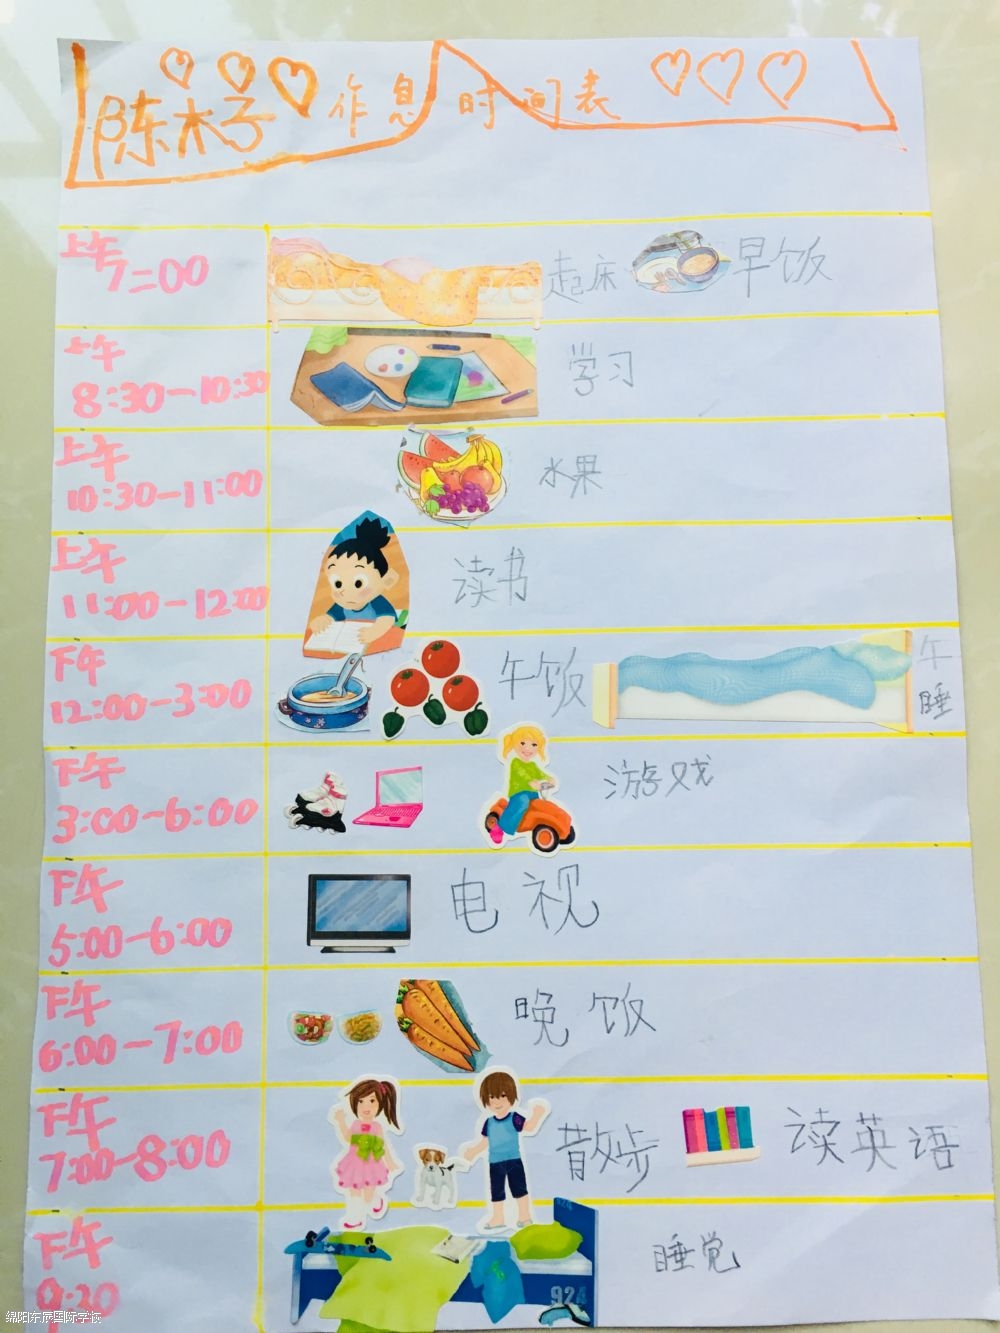 陈木子 作息时间表
上午
7:00 起床 早饭
上午
8:30-10:30 学习
上午
10:30-11:00 水果
上午
11:00-12:00 读书
下午
12:00-3:00 午饭 午睡
下午
3:00-6:00 游戏
下午
5:00-6:00 电视
下午
6:00-7:00 晚饭
下午
7:00-8:00 散步 读英语
下午
9:30 睡觉
924
绵阳东辰国际学校